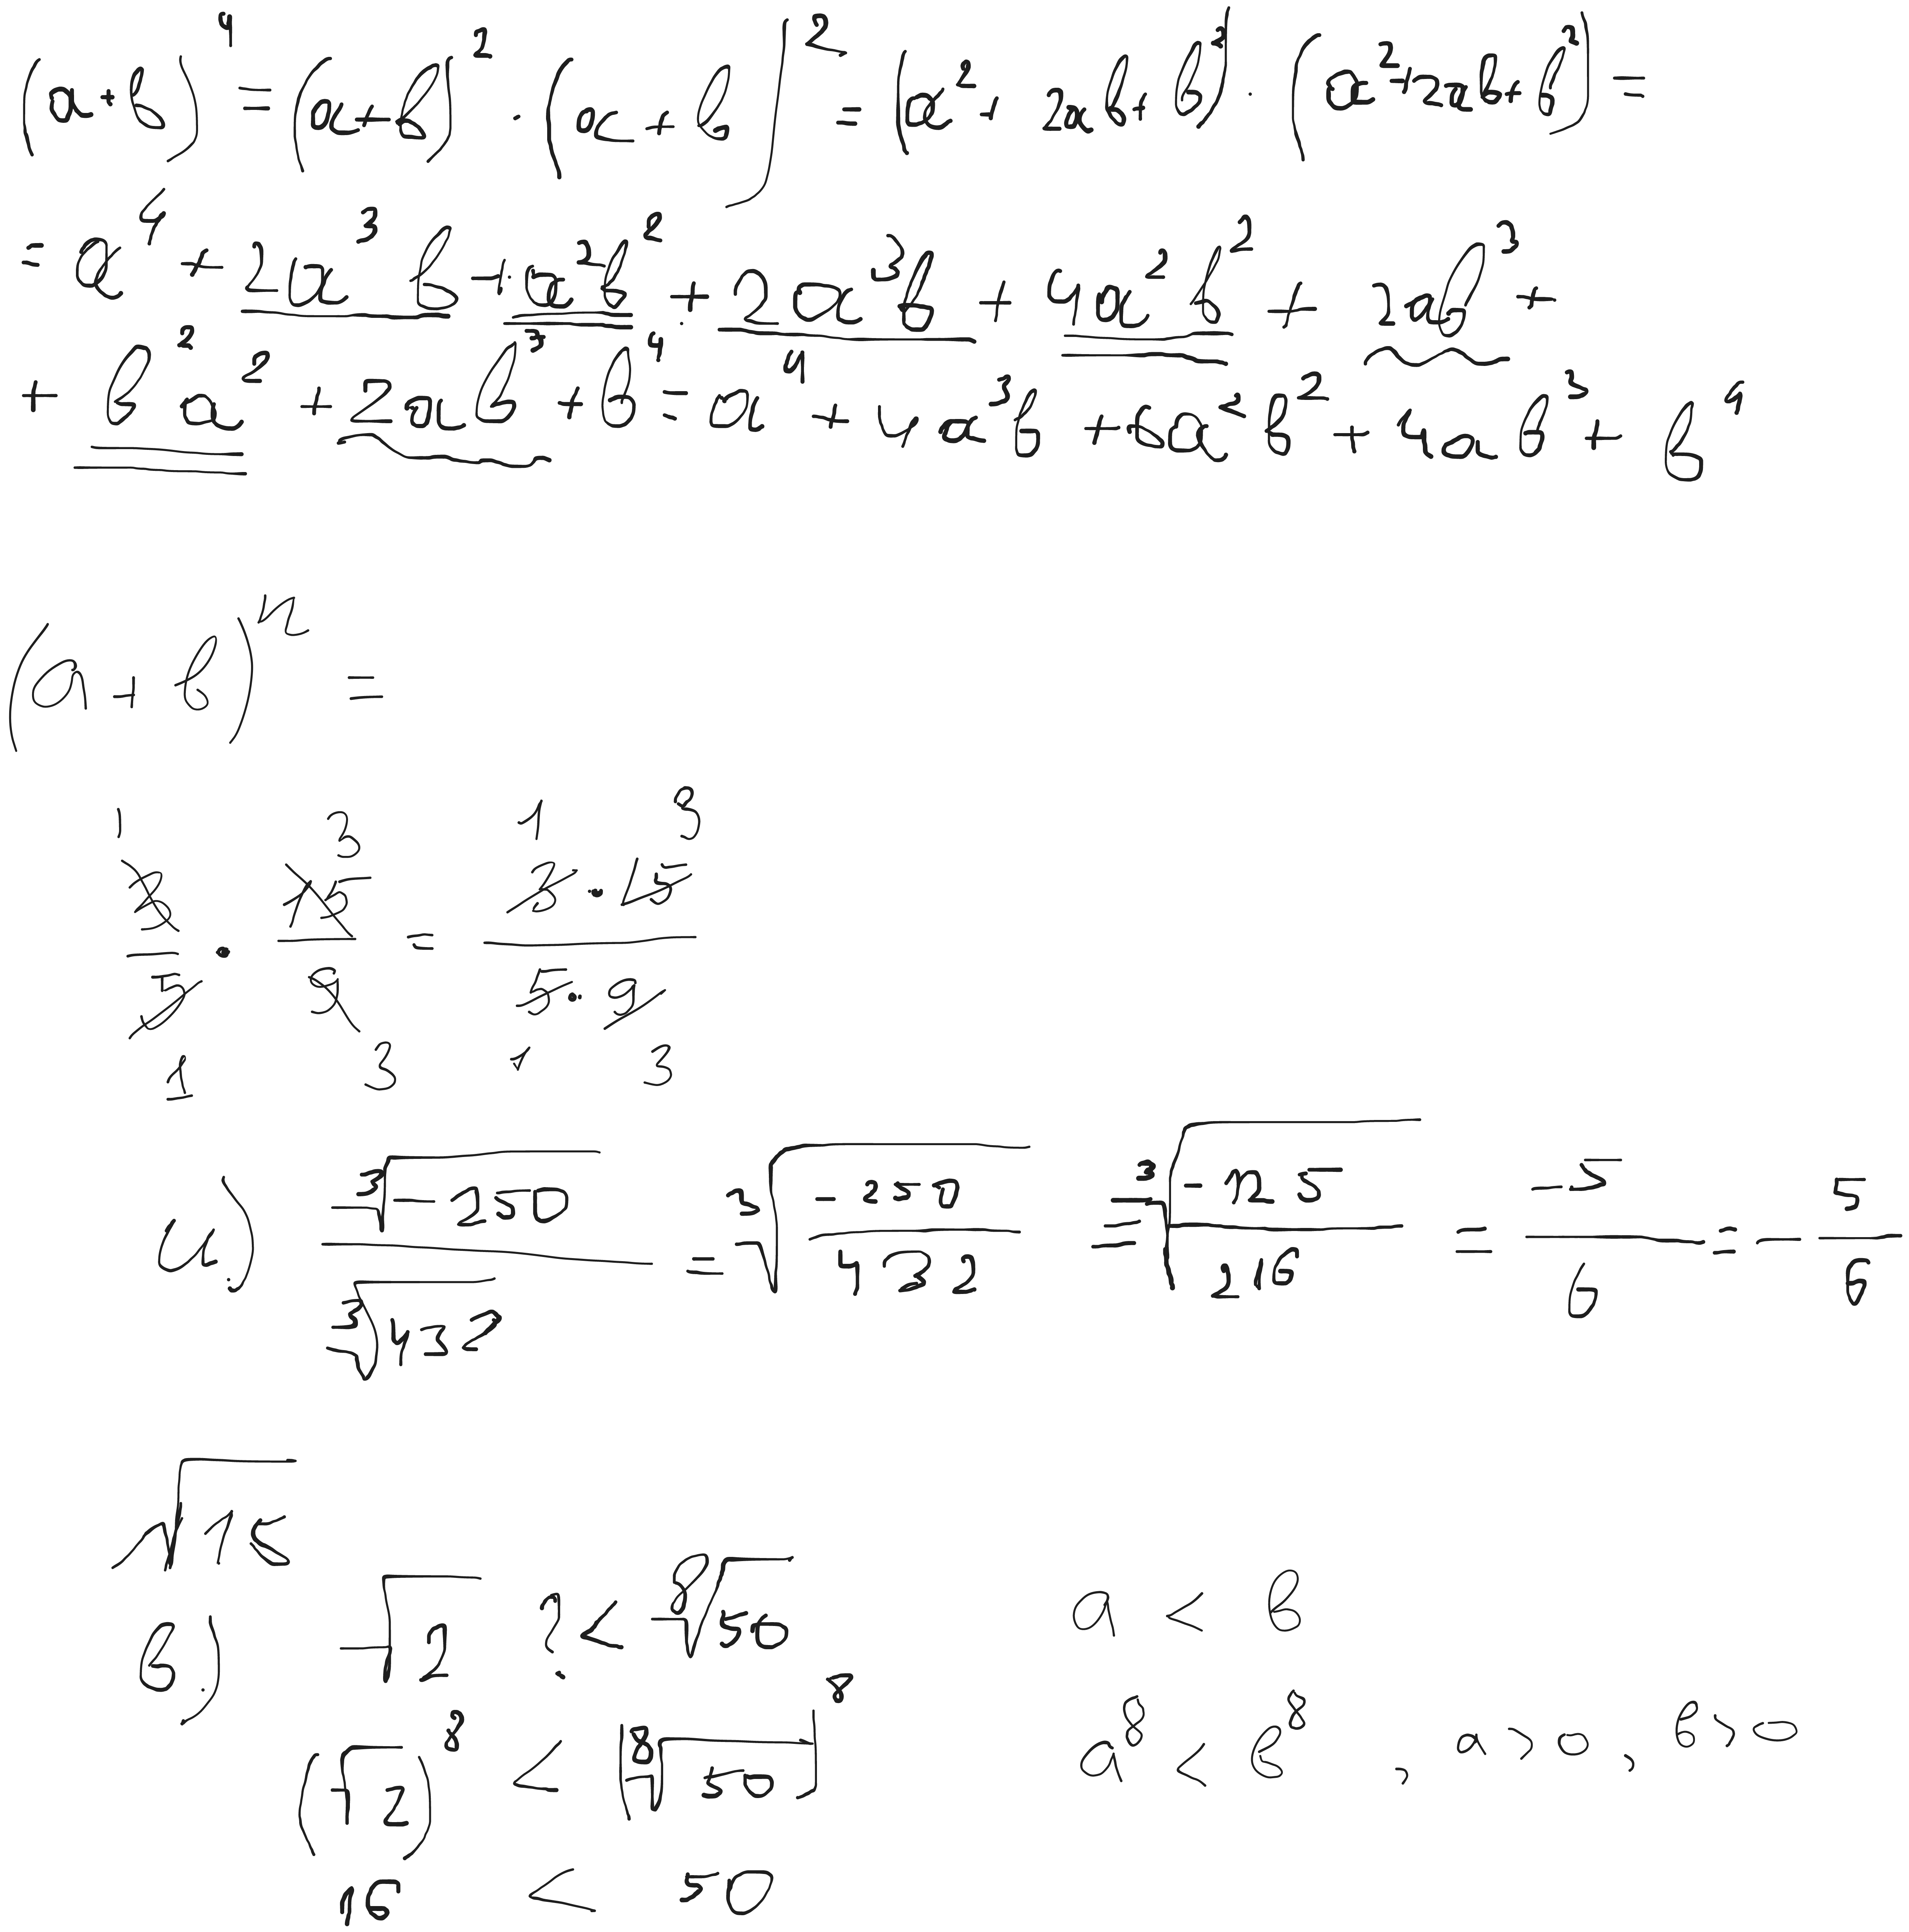 (a+b)⁴ = (a+b)² · (a+b)² = (a² + 2ab + b²) · (a² + 2ab + b²) =
= a⁴ + 2a³b + a²b² + 2a³b + 4a²b² + 2ab³ +
+ b²a² + 2ab³ + b⁴ = a⁴ + 4a³b + 6a²b² + 4ab³ + b⁴
(a + b)ⁿ =
1 3 1 3
3/5 · 15/9 = 3·15/5·9
1 3 1 3
и) ∛-250/∛432 = ∛(-250/432) = ∛(-125/216) = -5/6 = -5/6
√15
в) √2 ? < ⁸√50 a < b
(√2)⁸ < (⁸√50)⁸ a⁸ < b⁸ , a > 0 , b > 0
16 < 50